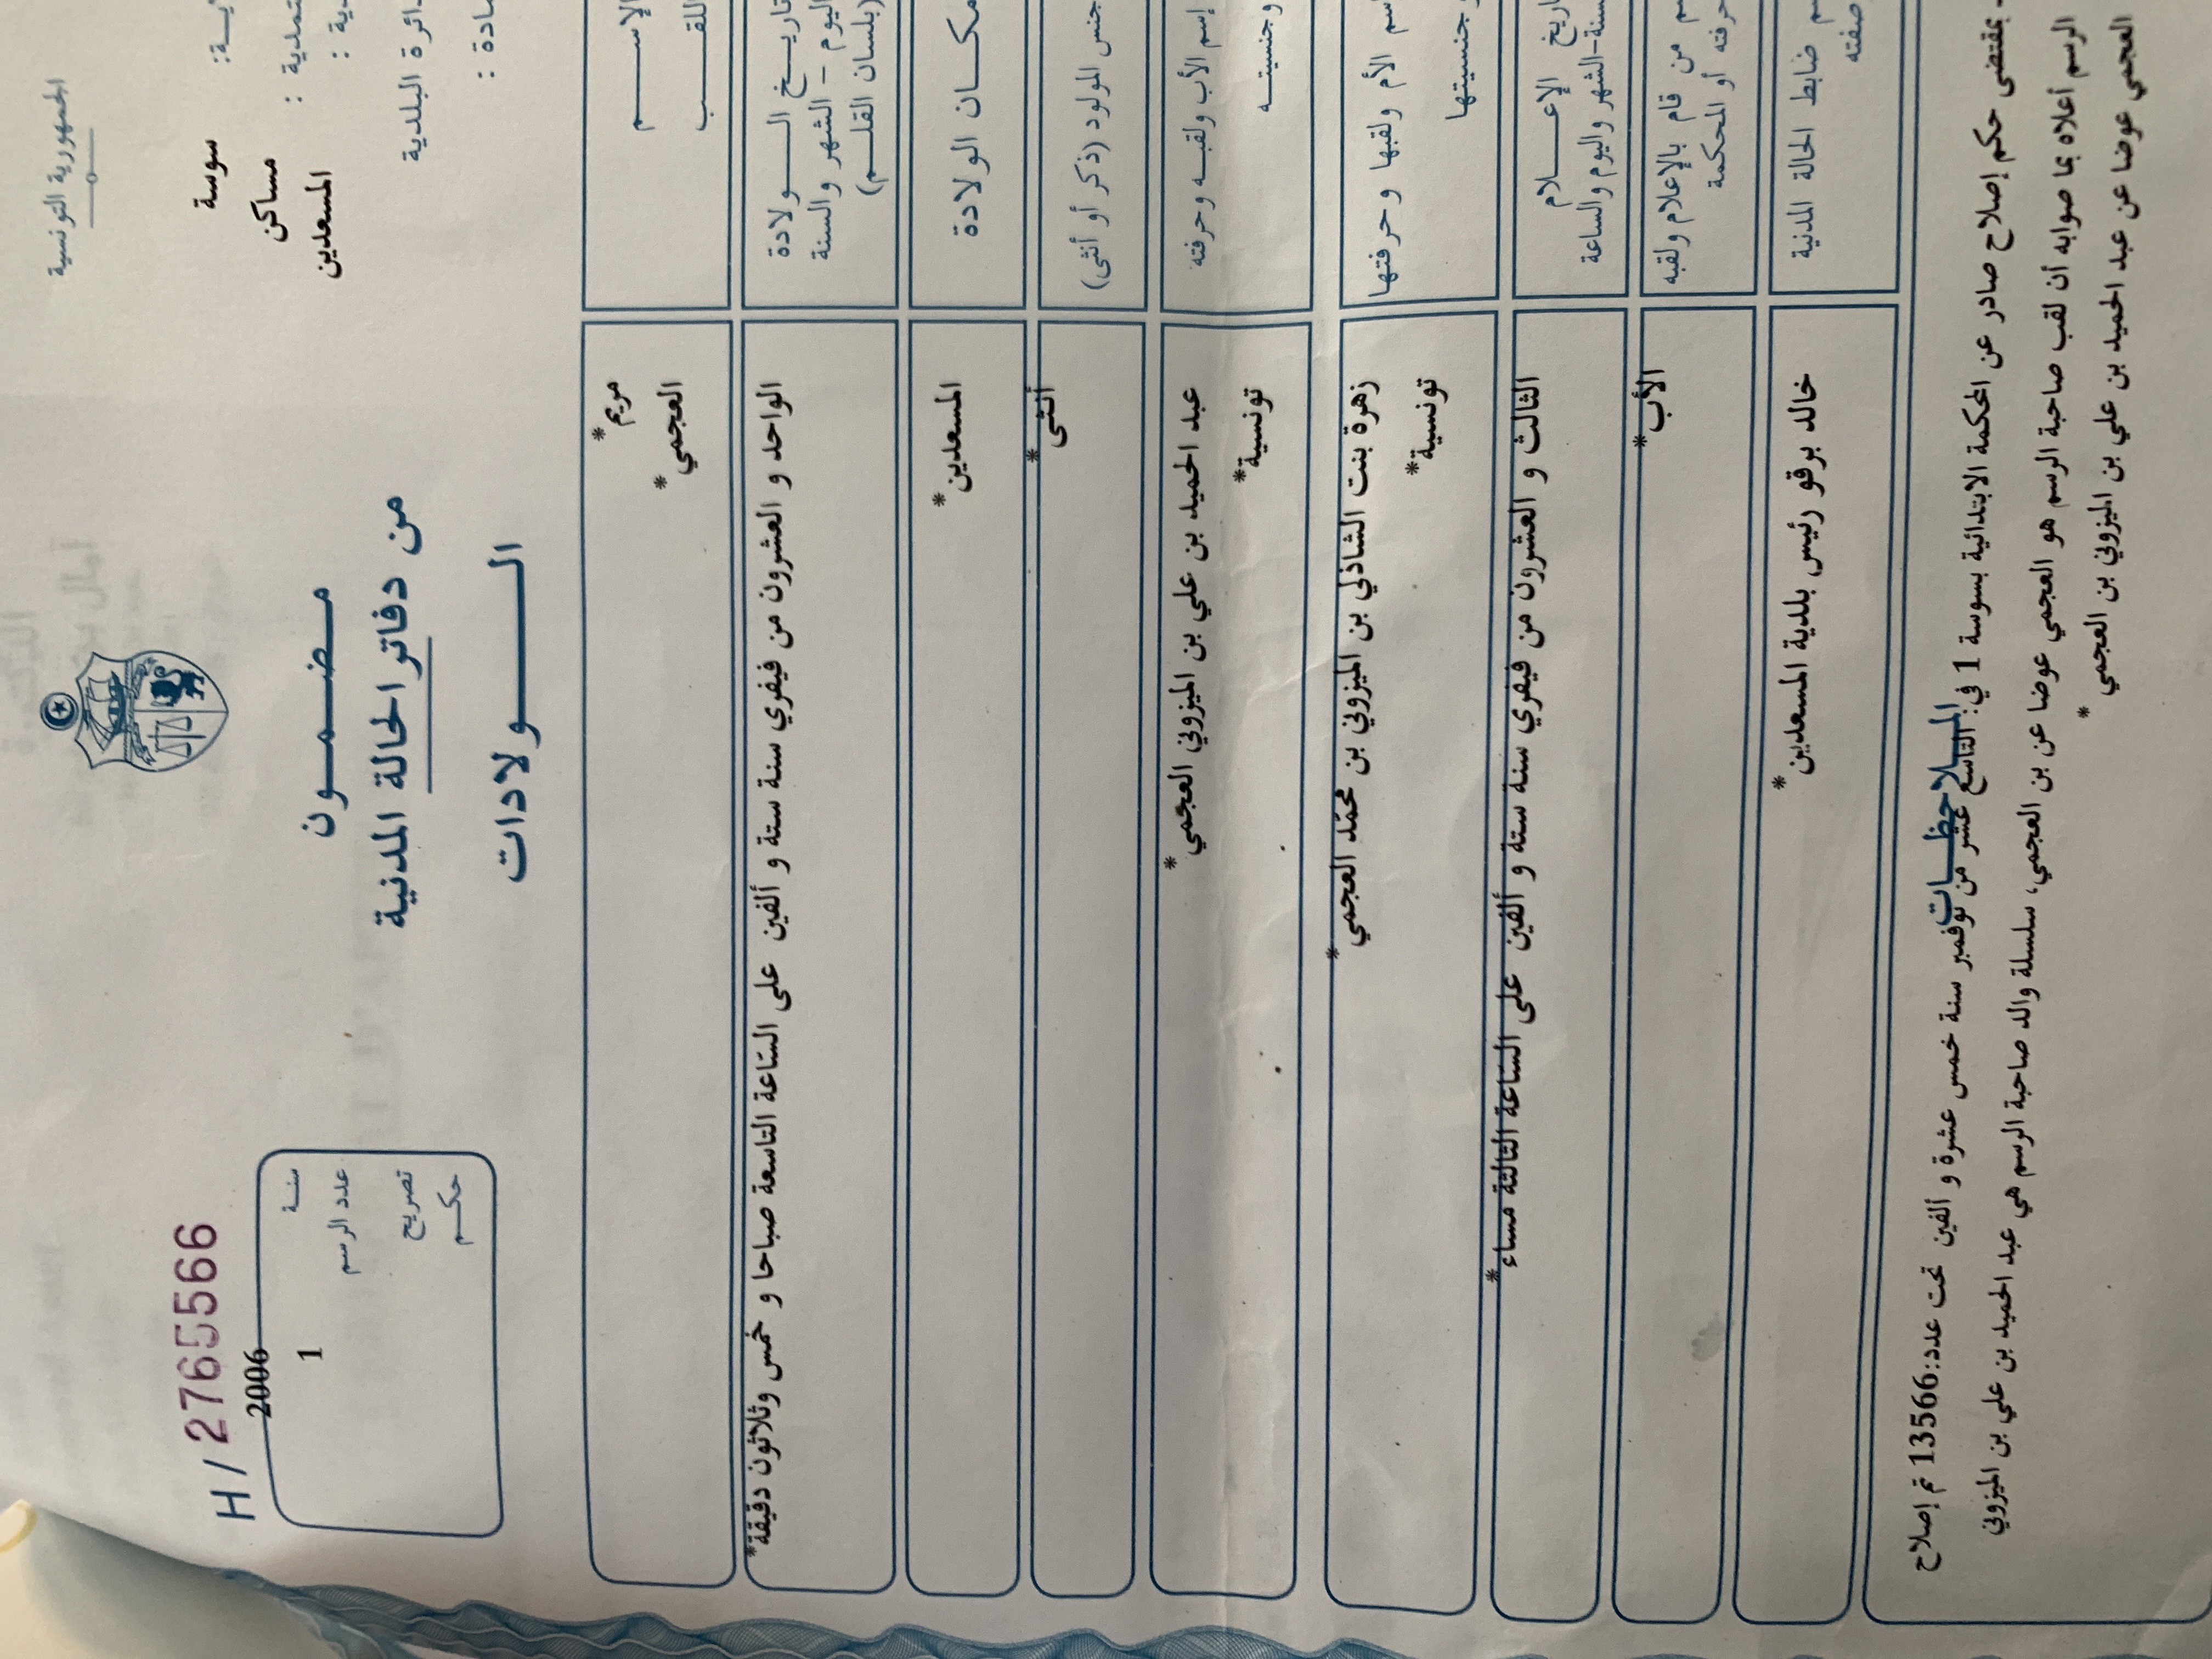 الجمهورية التونسية
سوسة
مساكن
المسعدين
ائرة البلدية
H / 2765566
2006
سنة
1
عدد الرسم
تصريح
حكم
مضمون
من دفاتر الحالة المدنية
الولادات
الإسم
مريم*
اللقب
العجمي*
تاريخ الولادة
اليوم - الشهر والسنة
(بلسان القلم)
الواحد و العشرون من فيفري سنة ستة و ألفين على الساعة التاسعة صباحا و خمس وثلاثون دقيقة*
مكان الولادة
المسعدين*
جنس المولود (ذكر أو أنثى)
أنثى*
إسم الأب ولقبه وحرفته
وجنسيته
عبد الحميد بن علي بن الميزوني العجمي*
تونسية*
إسم الأم ولقبها وحرفتها
وجنسيتها
زهرة بنت الشاذلي بن الميزوني بن محمد العجمي*
تونسية*
تاريخ الإعلام
السنة-الشهر واليوم والساعة
الثالث و العشرون من فيفري سنة ستة و ألفين على الساعة الثالثة مساء*
من قام بالإعلام ولقبه
حرفته أو المحكمة
الأب*
ضابط الحالة المدنية
صفته
خالد برقو رئيس بلدية المسعدين*
الملاحظات
- بمقتضى حكم إصلاح صادر عن المحكمة الابتدائية بسوسة 1 في: التاسع عشر من نوفمبر سنة خمس عشرة و ألفين تحت عدد:13566 تم إصلاح
الرسم أعلاه بما صوابه أن لقب صاحبة الرسم هو العجمي عوضا عن بن العجمي، سلسلة والد صاحبة الرسم هي عبد الحميد بن علي بن الميزوني
العجمي عوضا عن عبد الحميد بن علي بن الميزوني بن العجمي*